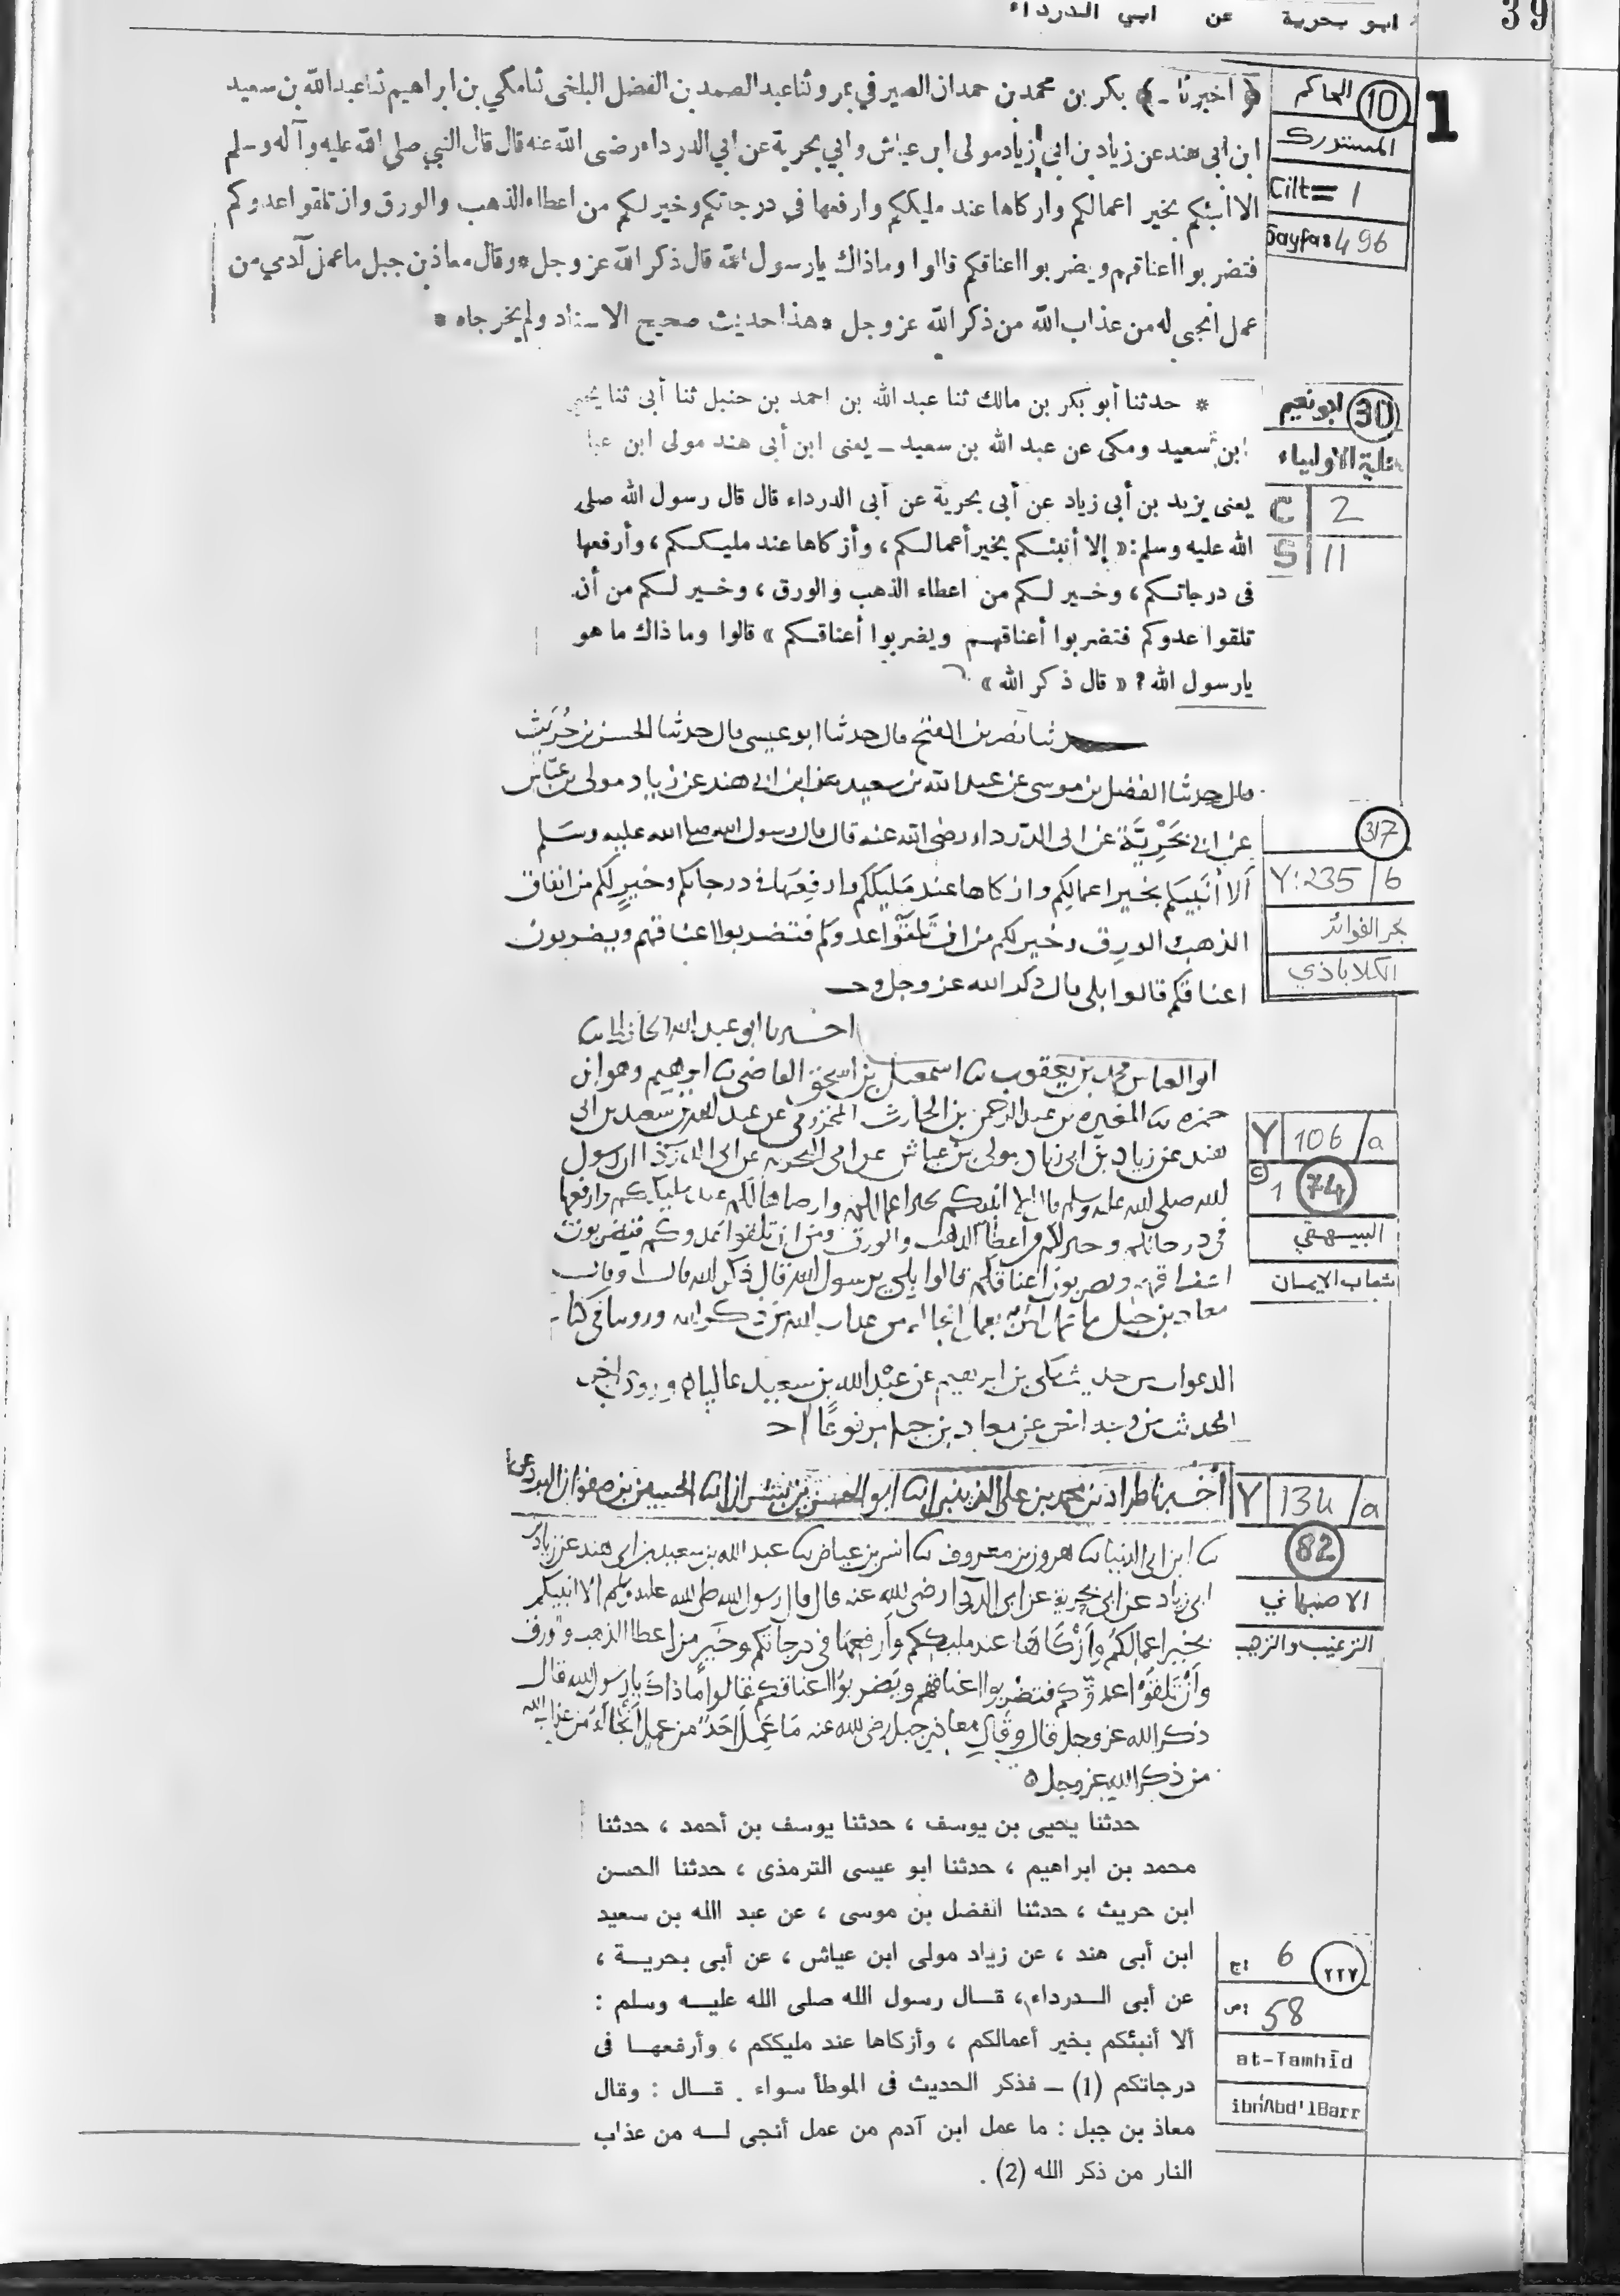 39
ابو بحرية عن ابي الدرداء
1
10 الحاكم
المستدرك
Cilt= 1
Sayfa: 496
﴿ اخبرنا - ﴾ بكر بن محمد بن حمدان الصيرفي بمرو ثنا عبد الصمد بن الفضل البلخى ثنا مكي بن ابراهيم ثنا عبد الله بن سعيد
ابن ابى هند عن زياد بن ابي زياد مولى ابن عياش وابي بحرية عن ابي الدرداء رضى الله عنه قال قال النبي صلى الله عليه وآله وسلم
الا انبئكم بخير اعمالكم وازكاها عند مليككم وارفعها في درجاتكم وخير لكم من اعطاء الذهب والورق وان تلقوا عدوكم
فتضربوا اعناقهم ويضربوا اعناقكم قالوا وماذاك يارسول الله قال ذكر الله عز وجل * وقال معاذ بن جبل ماعمل آدمي من
عمل انجى له من عذاب الله من ذكر الله عز وجل * هذا حديث صحيح الاسناد ولم يخرجاه *
30 ابو نعيم
حلية الاولياء
C 2
S 11
* حدثنا أبو بكر بن مالك ثنا عبد الله بن احمد بن حنبل ثنا أبى ثنا يحيى
ابن سعيد ومكى عن عبد الله بن سعيد ــ يعنى ابن أبى هند مولى ابن
يعنى يزيد بن أبى زياد عن أبى بحرية عن أبى الدرداء قال قال رسول الله صلى
الله عليه وسلم : « إلا أنبئكم بخير أعمالكم ، وأزكاها عند مليككم ، وأرفعها
فى درجاتكم ، وخير لكم من اعطاء الذهب والورق ، وخير لكم من أن
تلقوا عدوكم فتضربوا أعناقهم ويضربوا أعناقكم » قالوا وما ذاك ما هو
يارسول الله ؟ « قال ذكر الله »
317
Y: 235 / b
بحر الفوائد
الكلاباذي
حدثنا نصر بن الفتح قال حدثنا ابو عيسى قال حدثنا الحسن بن حُرَيث
قال حدثنا الفضل بن موسى عن عبد الله بن سعيد عن ابن ابي هند عن زياد مولى بن عيّاش
عن ابي بَحْرِيَّة عن ابي الدّرداء رضى الله عنه قال قال رسول الله صلى الله عليه وسَلم
أَلا أُنَبيكم بخير اعمالِكم وازكاها عند مَليككم وارفِعَها في درجاتكم وخيرٍ لكم من انفاق
الذهب والورِق وخير لكم من ان تَلقَوْا عدوكم فتضربوا اعناقهم ويضربون
اعناقكم قالوا بلى قال ذكر الله عز وجل
Y 106 / a
C 1 74
البيهقي
شعاب الايمان
اخبرنا ابو عبد الله الحافظ ثنا
ابو العباس محمد بن يعقوب ثنا اسمعيل بن اسحق القاضى ثنا ابرهيم وهو ابن
حمزه ثنا المغيره بن عبد الرحمن بن الحارث المخزومي عن عبد الله بن سعيد بن ابى
هند عن زياد بن ابى زياد مولى بن عياش عن ابى البحريه عن ابى الدرداء ان رسول
الله صلى الله عليه وسلم قال الا انبئكم بخير اعمالكم وارضاها لكم عند مليككم وارفعها
فى درجاتكم وخير لكم من اعطا الذهب والورق ومن ان تلقوا عدوكم فتضربون
اعناقهم ويضربون اعناقكم قالوا بلى يرسول الله قال ذكر الله
معاذ بن جبل من عذاب الله من ذكر الله وروينا في كتاب
الدعوات من حديث مكى بن ابرهيم عن عبد الله بن سعيد عاليا
الحديث من وجه اخر عن معاذ بن جبل مرفوعًا
Y 134 / a
82
الاصبهاني
الترغيب والترهيب
أخبرنا طراد بن محمد بن على الزينبي انا ابو الحسين بن بشران انا الحسين بن صفوان البردعى
ثنا ابن ابى الدنيا ثنا هرون بن معروف ثنا انس بن عياض ثنا عبد الله بن سعيد بن ابى هند عن زياد بن
ابى زياد عن ابى بحرية عن ابى الدردا رضى الله عنه قال قال رسول الله صلى الله عليه وسلم الا انبيكم
بخير اعمالِكُم وأزْكَاهَا عند مليككم وأرفعها فى درجاتكم وخَير من اعطا الذهب والورق
وَأَنْ تلقَوْا عدوّكم فتضْربوا اعناقهم ويَضربوُا اعناقكم قالوا وَمَا ذاك يا رسول الله قال
ذكر الله عز وجل قال وقَال معاذ بن جبل رضى الله عنه مَا عَمِلَ أحَدٌ من عمل أنجا لَهُ من عذاب الله
من ذكر الله عز وجل
٢٢٧ ج: 6
ص: 58
at-Tamhīd
ibn'Abd'lBarr
حدثنا يحيى بن يوسف ، حدثنا يوسف بن أحمد ، حدثنا
محمد بن ابراهيم ، حدثنا ابو عيسى الترمذى ، حدثنا الحسن
ابن حريث ، حدثنا الفضل بن موسى ، عن عبد الله بن سعيد
ابن أبى هند ، عن زياد مولى ابن عياش ، عن أبى بحرية ،
عن أبى الدرداء ، قال رسول الله صلى الله عليه وسلم :
ألا أنبئكم بخير أعمالكم ، وأزكاها عند مليككم ، وأرفعها فى
درجاتكم (1) ــ فذكر الحديث فى الموطأ سواء . قال : وقال
معاذ بن جبل : ما عمل ابن آدم من عمل أنجى له من عذاب
النار من ذكر الله (2) .